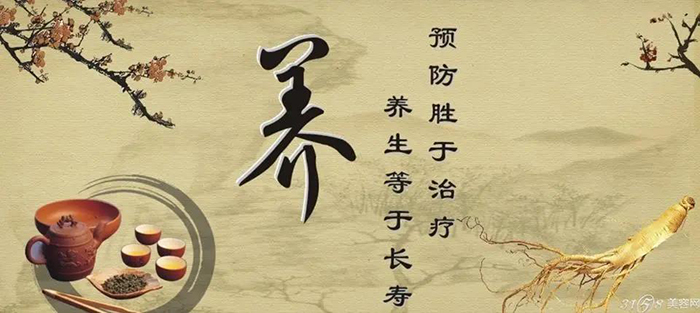 养
预防胜于治疗
养生等于长寿
3158美容网